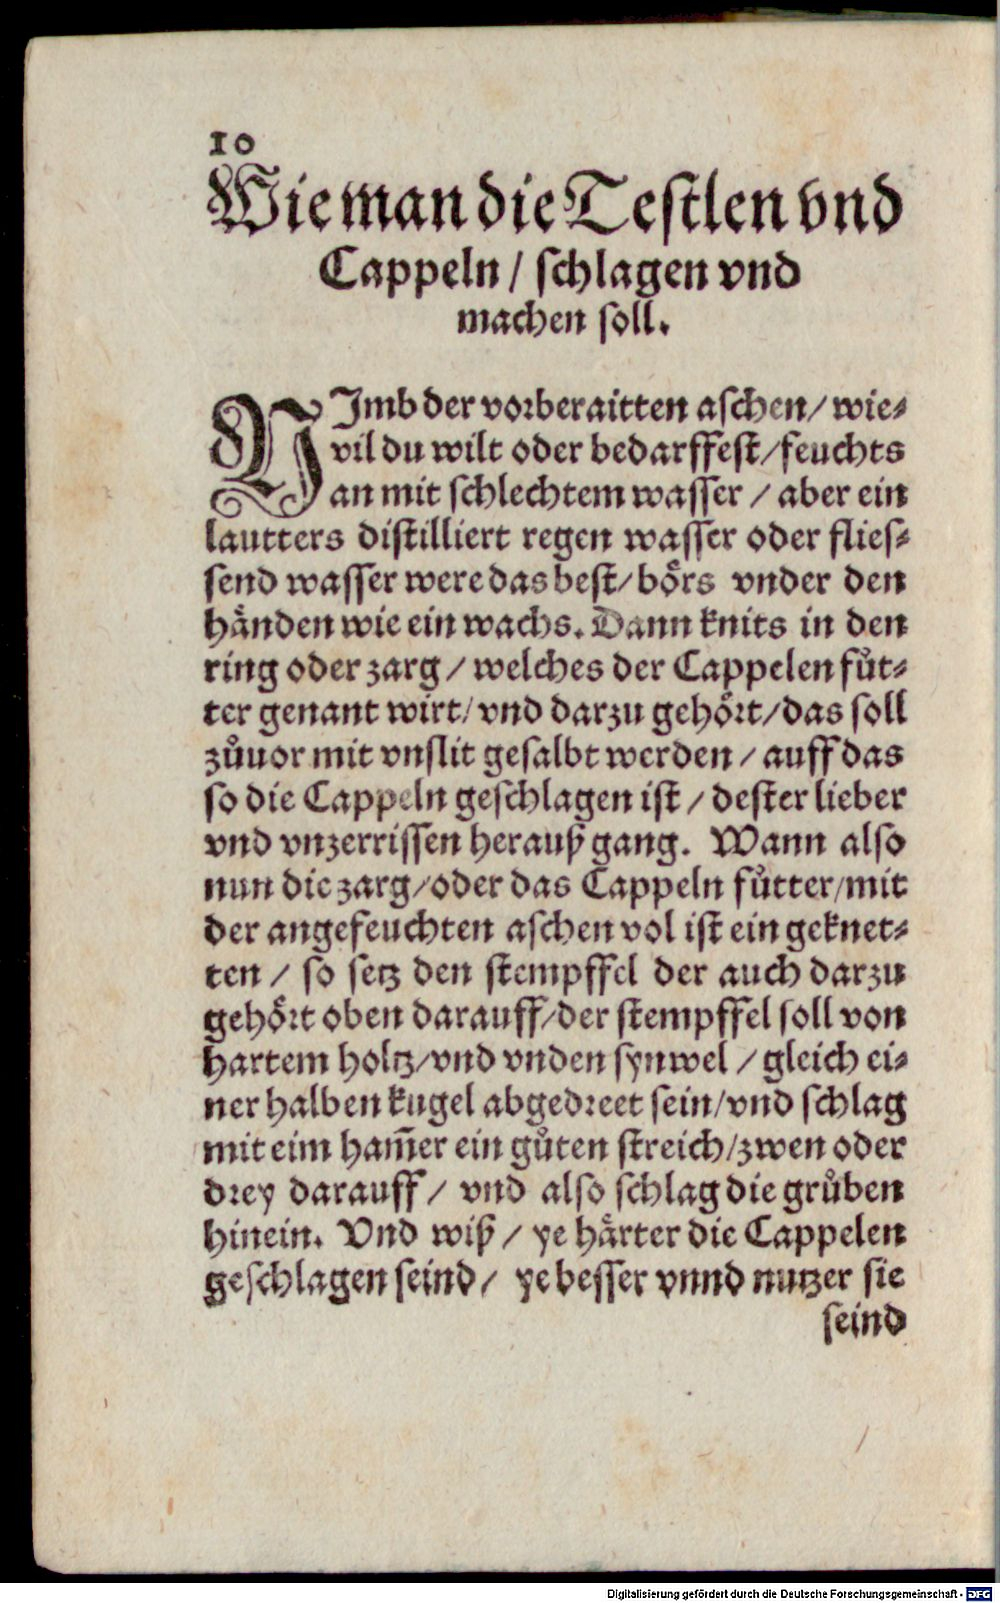 10
Wie man die Testlen vnd
Cappeln / schlagen vnd
machen soll.
NImb der vorberaitten aschen / wie-
vil du wilt oder bedarffest / feuchts
an mit schlechtem wasser / aber ein
lautters distilliert regen wasser oder flies-
send wasser were das best / börs vnder den
händen wie ein wachs. Dann knits in den
ring oder zarg / welches der Cappelen fůt-
ter genant wirt / vnd darzu gehört / das soll
zůuor mit vnslit gesalbt werden / auff das
so die Cappeln geschlagen ist / dester lieber
vnd vnzerrissen herauß gang. Wann also
nun die zarg / oder das Cappeln fůtter / mit
der angefeuchten aschen vol ist ein geknet-
ten / so setz den stempffel der auch darzu
gehört oben darauff / der stempffel soll von
hartem holtz / vnd vnden synwel / gleich ei-
ner halben kugel abgedreet sein / vnd schlag
mit eim ham̄er ein gůten streich / zwen oder
drey darauff / vnd also schlag die grůben
hinein. Vnd wiß / ye härter die Cappelen
geschlagen seind / ye besser vnnd nutzer sie
seind
Digitalisierung gefördert durch die Deutsche Forschungsgemeinschaft - DFG